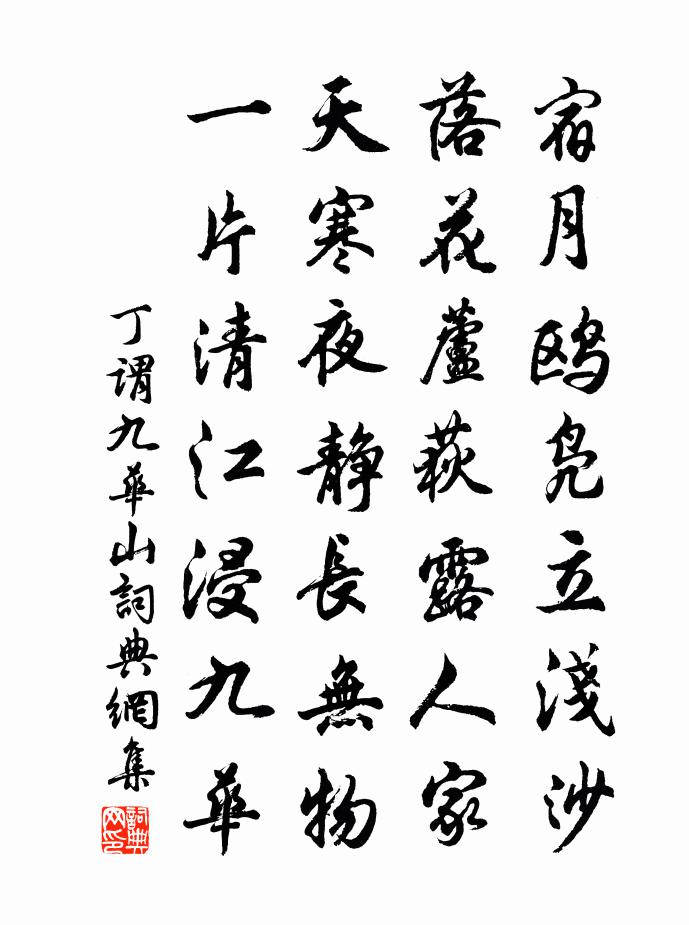 宿月鷗鳧立淺沙
落花蘆荻露人家
天寒夜靜長無物
一片清江浸九華
丁謂九華山詞典網集
詞典網印